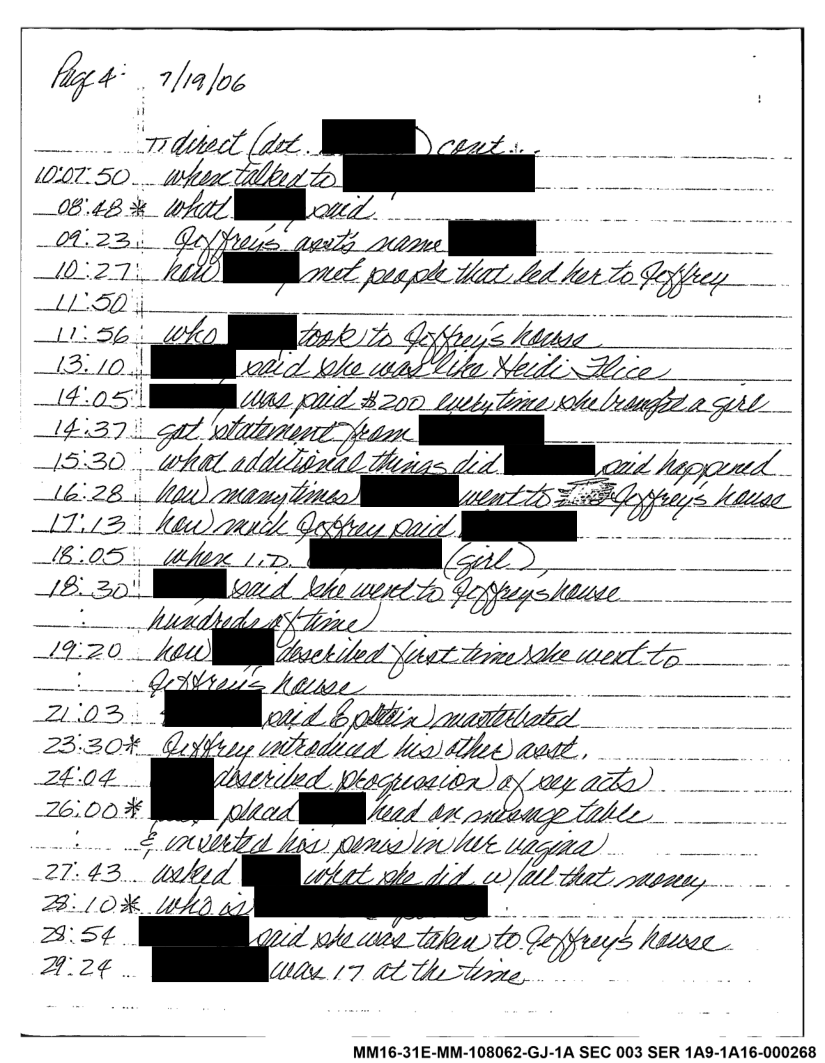 Page 4: 7/19/06
π direct (det. ) cont...
10:07:50 when talked to
08:48* what said
09:23 Jeffrey's asst's name
10:27 how met people that led her to Jeffrey
11:50
11:56 who took to Jeffrey's house
13:10 said she was like Heidi Flice
14:05 was paid $200 everytime she brought a girl
14:37 got statement from
15:30 what additional things did said happened
16:28 how many times went to Jeffrey's house
17:13 how much Jeffrey paid
18:05 when I.D. (girl)
18:30 said she went to Jeffreys house
: hundreds of time
19:20 how described first time she went to
: Jeffrey's house
21:03 said Epstein masterbated
23:30* Jeffrey introduced his other asst.
24:04 described progression of sex acts
26:00* placed head on massage table
: & inverted his penis in her vagina
27:43 asked what she did w/all that money
28:10* who is
28:54 said she was taken to Jeffrey's house
29:24 was 17 at the time
MM16-31E-MM-108062-GJ-1A SEC 003 SER 1A9-1A16-000268